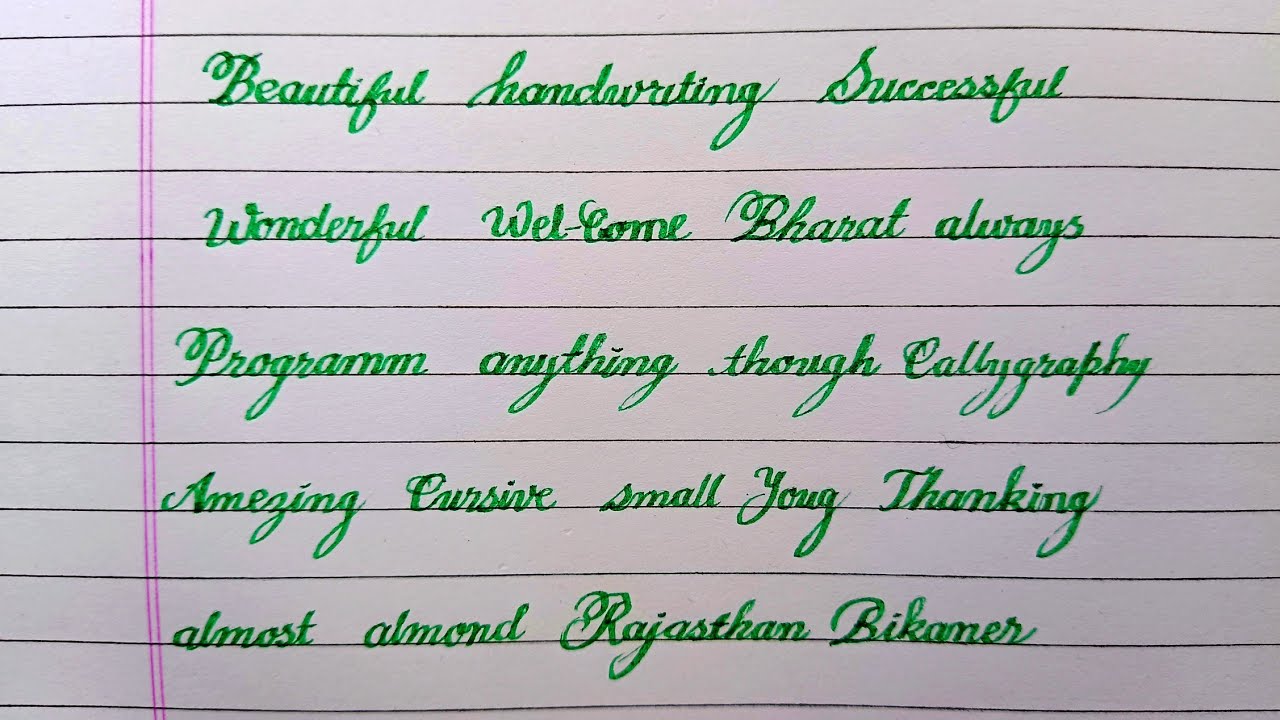 Beautiful handwriting Successful
Wonderful Wel-Come Bharat always
Programm anything though Callygraphy
Amezing Cursive small Youg Thanking
almost almond Rajasthan Bikaner